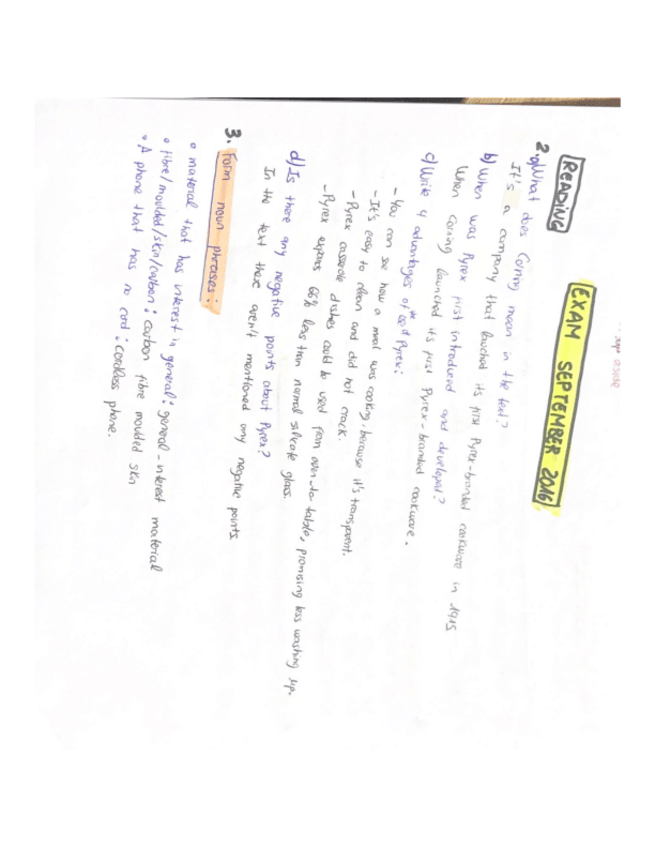 EXAM SEPTEMBER 2016
READING
2. a) What does Corning mean in the text?
It's a company that lauched its first Pyrex-branded cookware in 1915
b) When was Pyrex first introduced and developed?
When Corning launched it's first Pyrex-branded cookware.
c) Write 4 advantages of the use of Pyrex:
- You can see how a meal was cooking, because it's transparent.
- It's easy to clean and did not crack.
- Pyrex casserole dishes could be used from oven-to table, promising less washing up.
- Pyrex expans 66% less than normal silicate glass.
d) Is there any negative points about Pyrex?
In the text there aren't mentioned any negative points.
3. Form noun phrases:
• material that has interest in general: general-interest material
• fibre/moulded/skin/carbon: carbon fibre moulded skin
• A phone that has no cord: cordless phone.